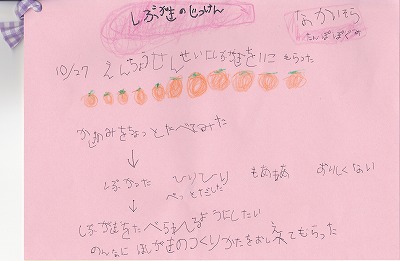 しぶがきのじっけん
なかいそら
たんぽぽぐみ
10/27 えんちょうせんせいにしぶがきを もらった
かじつみをちょっとたべてみた
↓
しぶかった ひりひり もあもあ おいしくない
ぺっとだした
↓
しぶがきをたべられるようにしたい
ほしがきのつくりかたをおしえてもらった